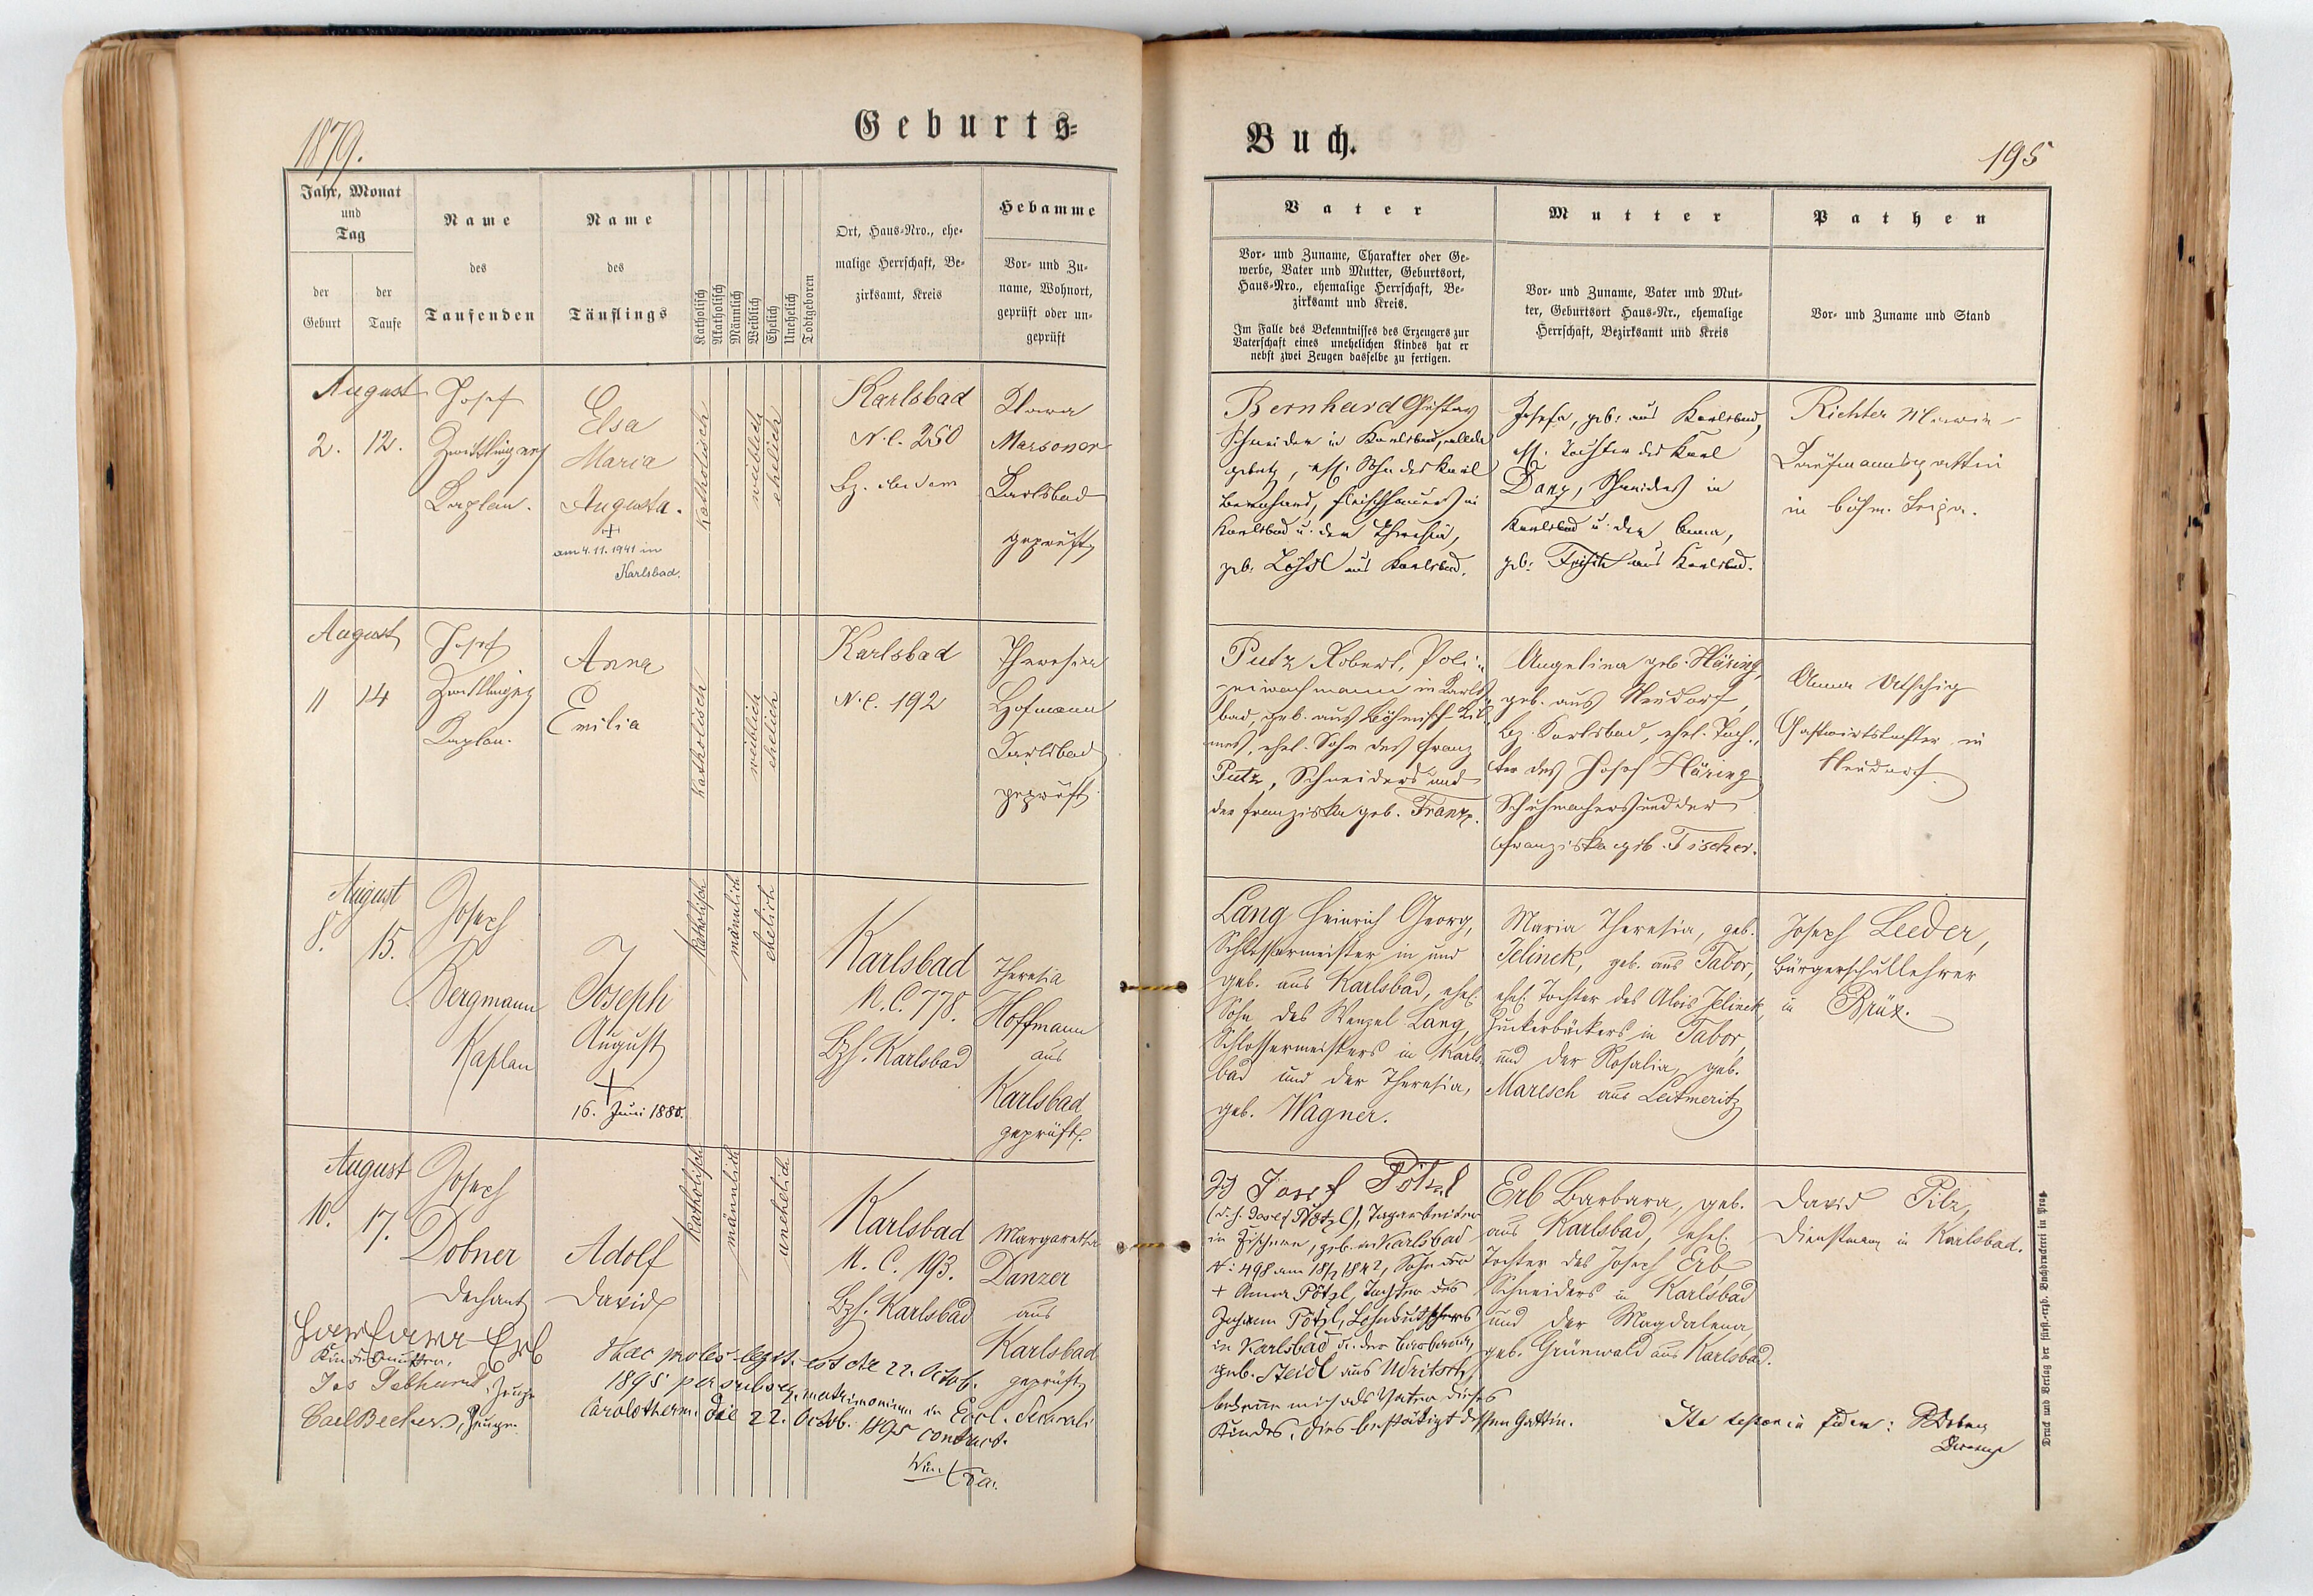 1879.
Geburts-
Buch.
195
Jahr, Monat
und
Tag
der
Geburt
der
Taufe
Name
des
Taufenden
Name
des
Täuflings
Katholisch
Akatholisch
Männlich
Weiblich
Ehelich
Unehelich
Todtgeboren
Ort, Haus-Nro., ehe-
malige Herrschaft, Be-
zirksamt, Kreis
Hebamme
Vor- und Zu-
name, Wohnort,
geprüft oder un-
geprüft
Vater
Vor- und Zuname, Charakter oder Ge-
werbe, Vater und Mutter, Geburtsort,
Haus-Nro., ehemalige Herrschaft, Be-
zirksamt und Kreis.
Im Falle des Bekenntnisses des Erzeugers zur
Vaterschaft eines unehelichen Kindes hat er
nebst zwei Zeugen dasselbe zu fertigen.
Mutter
Vor- und Zuname, Vater und Mut-
ter, Geburtsort Haus-Nr., ehemalige
Herrschaft, Bezirksamt und Kreis
Pathen
Vor- und Zuname und Stand
August
2. 12.
Josef
Kaplan.
Elsa
Maria
Augusta.
+
am 4.11.1941 in
Karlsbad.
katholisch
weiblich
ehelich
Karlsbad
N.C. 250
Klara
Marsoner
Karlsbad
geprüft
Bernhard Gustav
Schneider in Karlsbad,
gebürt., ehl. Sohn des Karl
Bernhard, Fleischhauers in
Karlsbad u. der Theresia,
geb. Lößl aus Karlsbad.
Josefa, geb. aus Karlsbad,
ehl. Tochter des Karl
Danz, Schneiders in
Karlsbad u. der Anna,
geb. aus Karlsbad.
Richter
Kaufmannsgattin
in böhm. Leipa.
August
11 14
Josef
Kaplan.
Anna
Emilia
katholisch
weiblich
ehelich
Karlsbad
N.C. 192
Theresia
Hofmann
Karlsbad
geprüft
Putz Robert, Poli-
zeiwachmann in Karls-
bad, geb. aus Böhmisch-
ehel. Sohn des Franz
Putz, Schneiders und
der Franziska geb. Franz.
Angelina geb. Häring,
geb. aus Neudorf,
Bz. Karlsbad, ehel. Toch-
ter des Josef Häring
Schuhmachers und der
Franziska geb. Fischer.
Anna
Gastwirtstochter in
Neudorf.
August
8. 15.
Joseph
Bergmann
Kaplan
Joseph
August
+
16. Juni 1880.
katholisch
männlich
ehelich
Karlsbad
N.C. 778.
Bzh. Karlsbad
Theresia
Hoffmann
aus
Karlsbad
geprüft.
Lang Heinrich Georg,
Schlossermeister in und
geb. aus Karlsbad, ehel.
Sohn des Wenzel Lang,
Schlossermeisters in Karls-
bad und der Theresia,
geb. Wagner.
Maria Theresia, geb.
Jelinek, geb. aus Tabor,
ehel. Tochter des Alois Jelinek,
Zuckerbäckers in Tabor,
und der Rosalia, geb.
Maresch aus Leitmeritz
Joseph Leeder,
Bürgerschullehrer
in Brüx.
August
10. 17.
Joseph
Dobner
Dechant
Adolf
David
katholisch
männlich
unehelich
Karlsbad
N.C. 193.
Bzh. Karlsbad
Margaretha
Danzer
aus
Karlsbad
geprüft
Ich Josef Pötzl
(d.h. Josef Pötzl), Tagarbeiter
in Fischern, geb. in Karlsbad
N: 498 am 18/2 1842, Sohn der
+ Anna Pötzl, Tochter des
Johann Pötzl, Lohnkutschers
in Karlsbad u. der Barbara,
geb. Steidl aus
bekenne mich als Vater dieses
Kindes. Dies bestätigt dessen Gattin.
Erb Barbara, geb.
aus Karlsbad, ehel.
Tochter des Joseph Erb
Schneiders in Karlsbad
und der Magdalena,
geb. Grünwald aus Karlsbad.
David Pilz,
Dienstmann in Karlsbad.
Barbara Erb
Kindsmutter.
Jos Zeuge
Carl Becher, Zeuge.
Haec proles legit. est die 22. Octob.
1895 per subseq. matrimonium in Eccl.
Carolotherm. die 22. Octob. 1895 contract.
Ita testor in fidem: Dobner
Druck und Verlag der fürst.-erzb. Buchdruckerei in Prag.